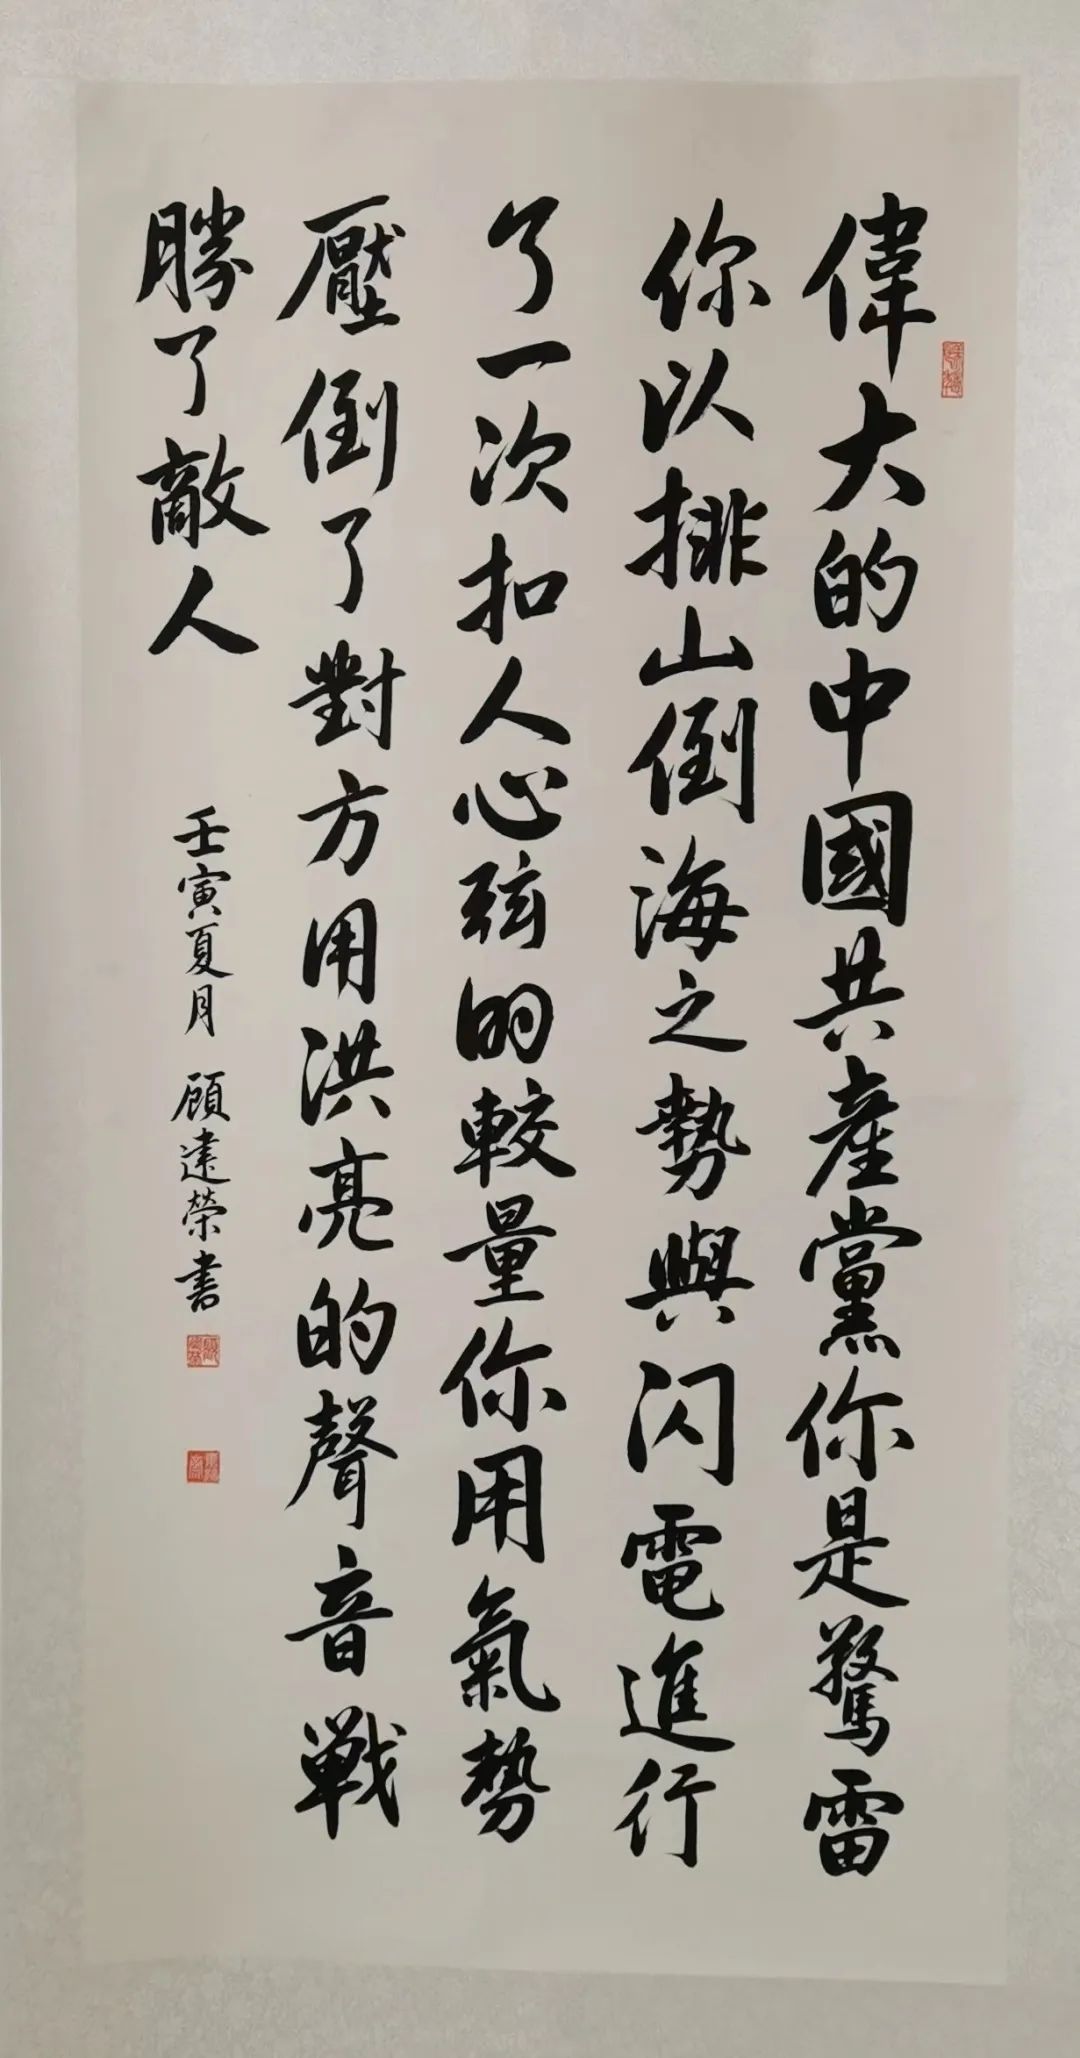 偉大的中國共產黨你是驚雷
你以排山倒海之勢與閃電進行
了一次扣人心弦的較量你用氣勢
壓倒了對方用洪亮的聲音戰
勝了敵人
壬寅夏月 顧建榮書